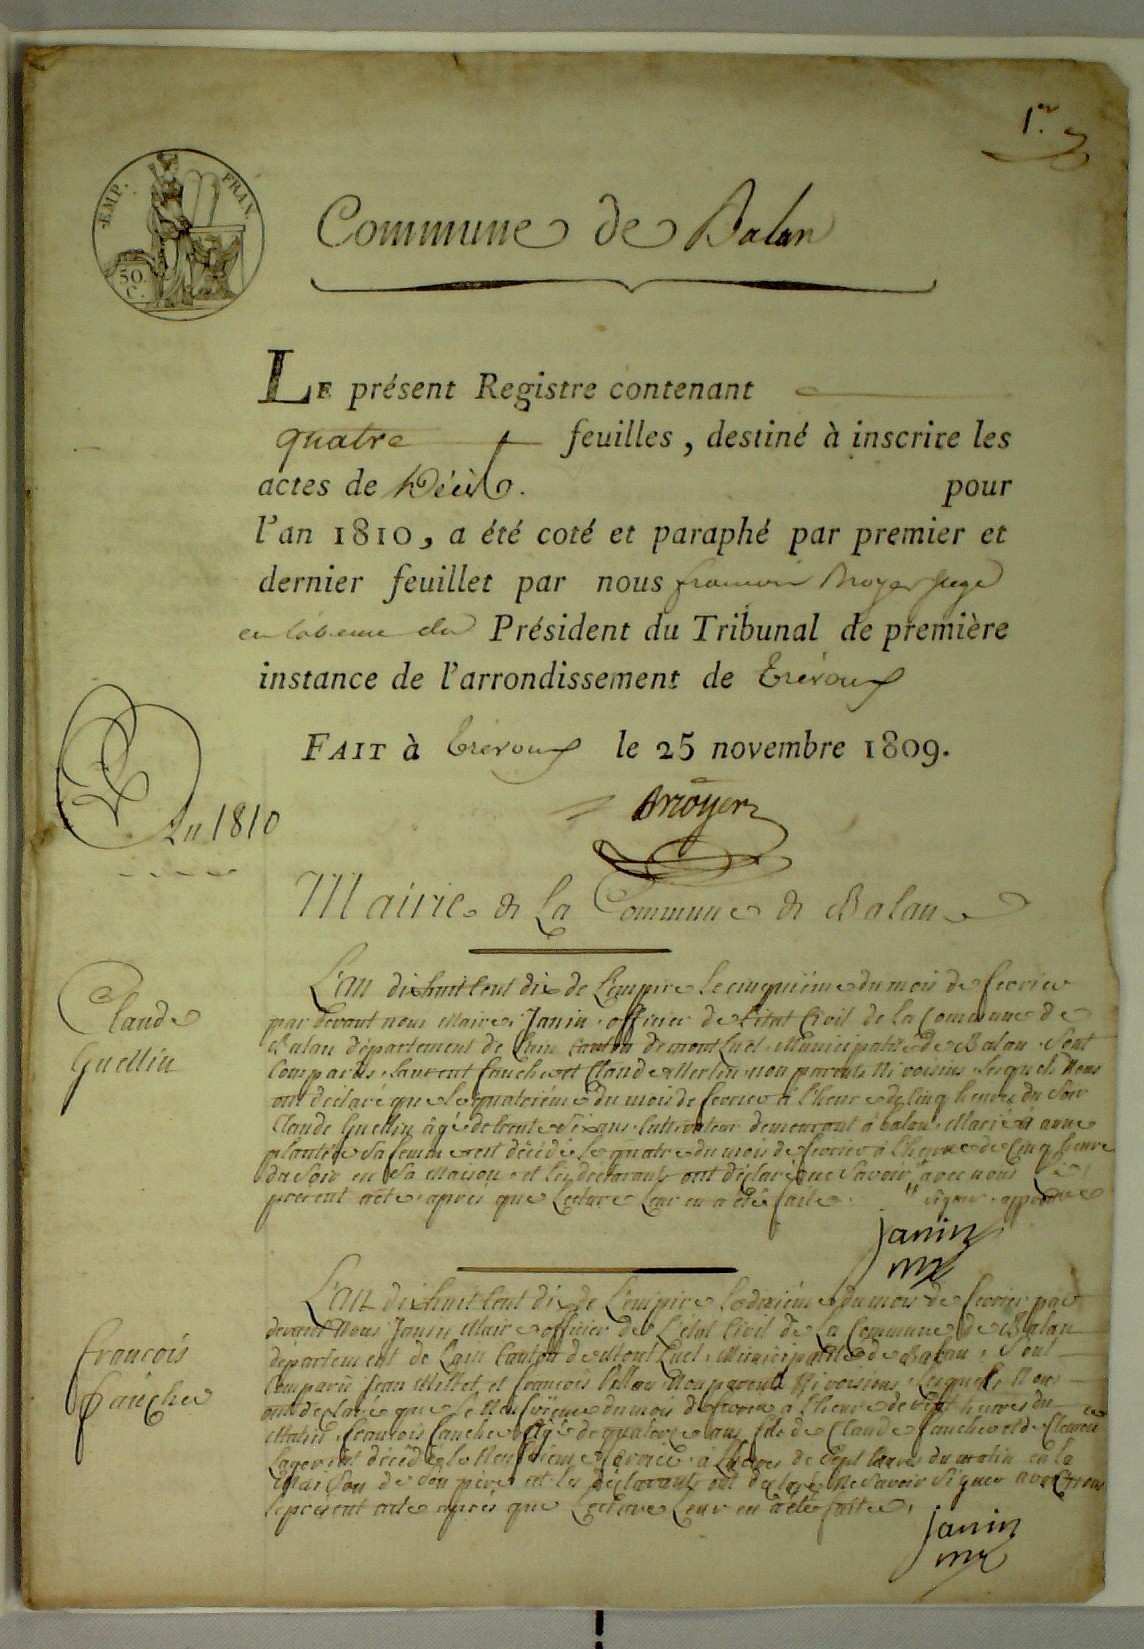 1er
EMP. FRAN.
50
C.
Commune de Balan
LE présent Registre contenant
quatre feuilles, destiné à inscrire les
actes de Décès. pour
l'an 1810, a été coté et paraphé par premier et
dernier feuillet par nous francois Broyer juge
en l'absence du Président du Tribunal de première
instance de l'arrondissement de Trévoux
FAIT à Trévoux le 25 novembre 1809.
Broyer
An 1810
Mairie de La Commune de Balan
Claude
Guellin
L'an dix huit Cent dix de L'empire le cinquième du mois de fevrier
par devant nous Maire, Janin, officier de l'état Civil de la Commune de
Balan département de L'ain Canton de montLuel, Municipalité de Balan, Sont
Comparus, Laurent fauche et Claude Merlin, non parents Ni voisins, Lesquels Nous
ont déclaré que le quatrième du mois de fevrier à l'heure de cinq heures du Soir
Claude Guellin âgé de trente Six ans, Cultivateur demeurant à balan, Marié à anne
plantée Sa femme est décédé le quatre du mois de fevrier à l'heure de Cinq heure
du Soir en Sa Maison, et les declarants ont déclaré ne Savoir avec nous le
present acte, après que Lecture Leur en a été faite. " signer, approuvé
janin
mr
francois
fauche
L'an dix huit Cent dix de L'empire Le dixième du mois de fevrier par
devant Nous Janin Maire officier de L'état Civil de La Commune de Balan
département de L'ain Canton de MontLuel, Municipalité de Balan, Sont
Comparu jean Millet et francois Non parents Ni voisins, Lesquels Nous
ont declaré que le Neuvième du mois de fevrier à l'heure de Sept heures du
Matin, francois fauche Agé de quatorze ans fils de Claude fauche et de
est décédé le Neuvième fevrier à L'heure de Sept heures du matin en la
Maison de Son père et les déclarants ont declaré Ne Savoir Signer avec nous
le present acte après que Lecture Leur en a été faite,
janin
mr